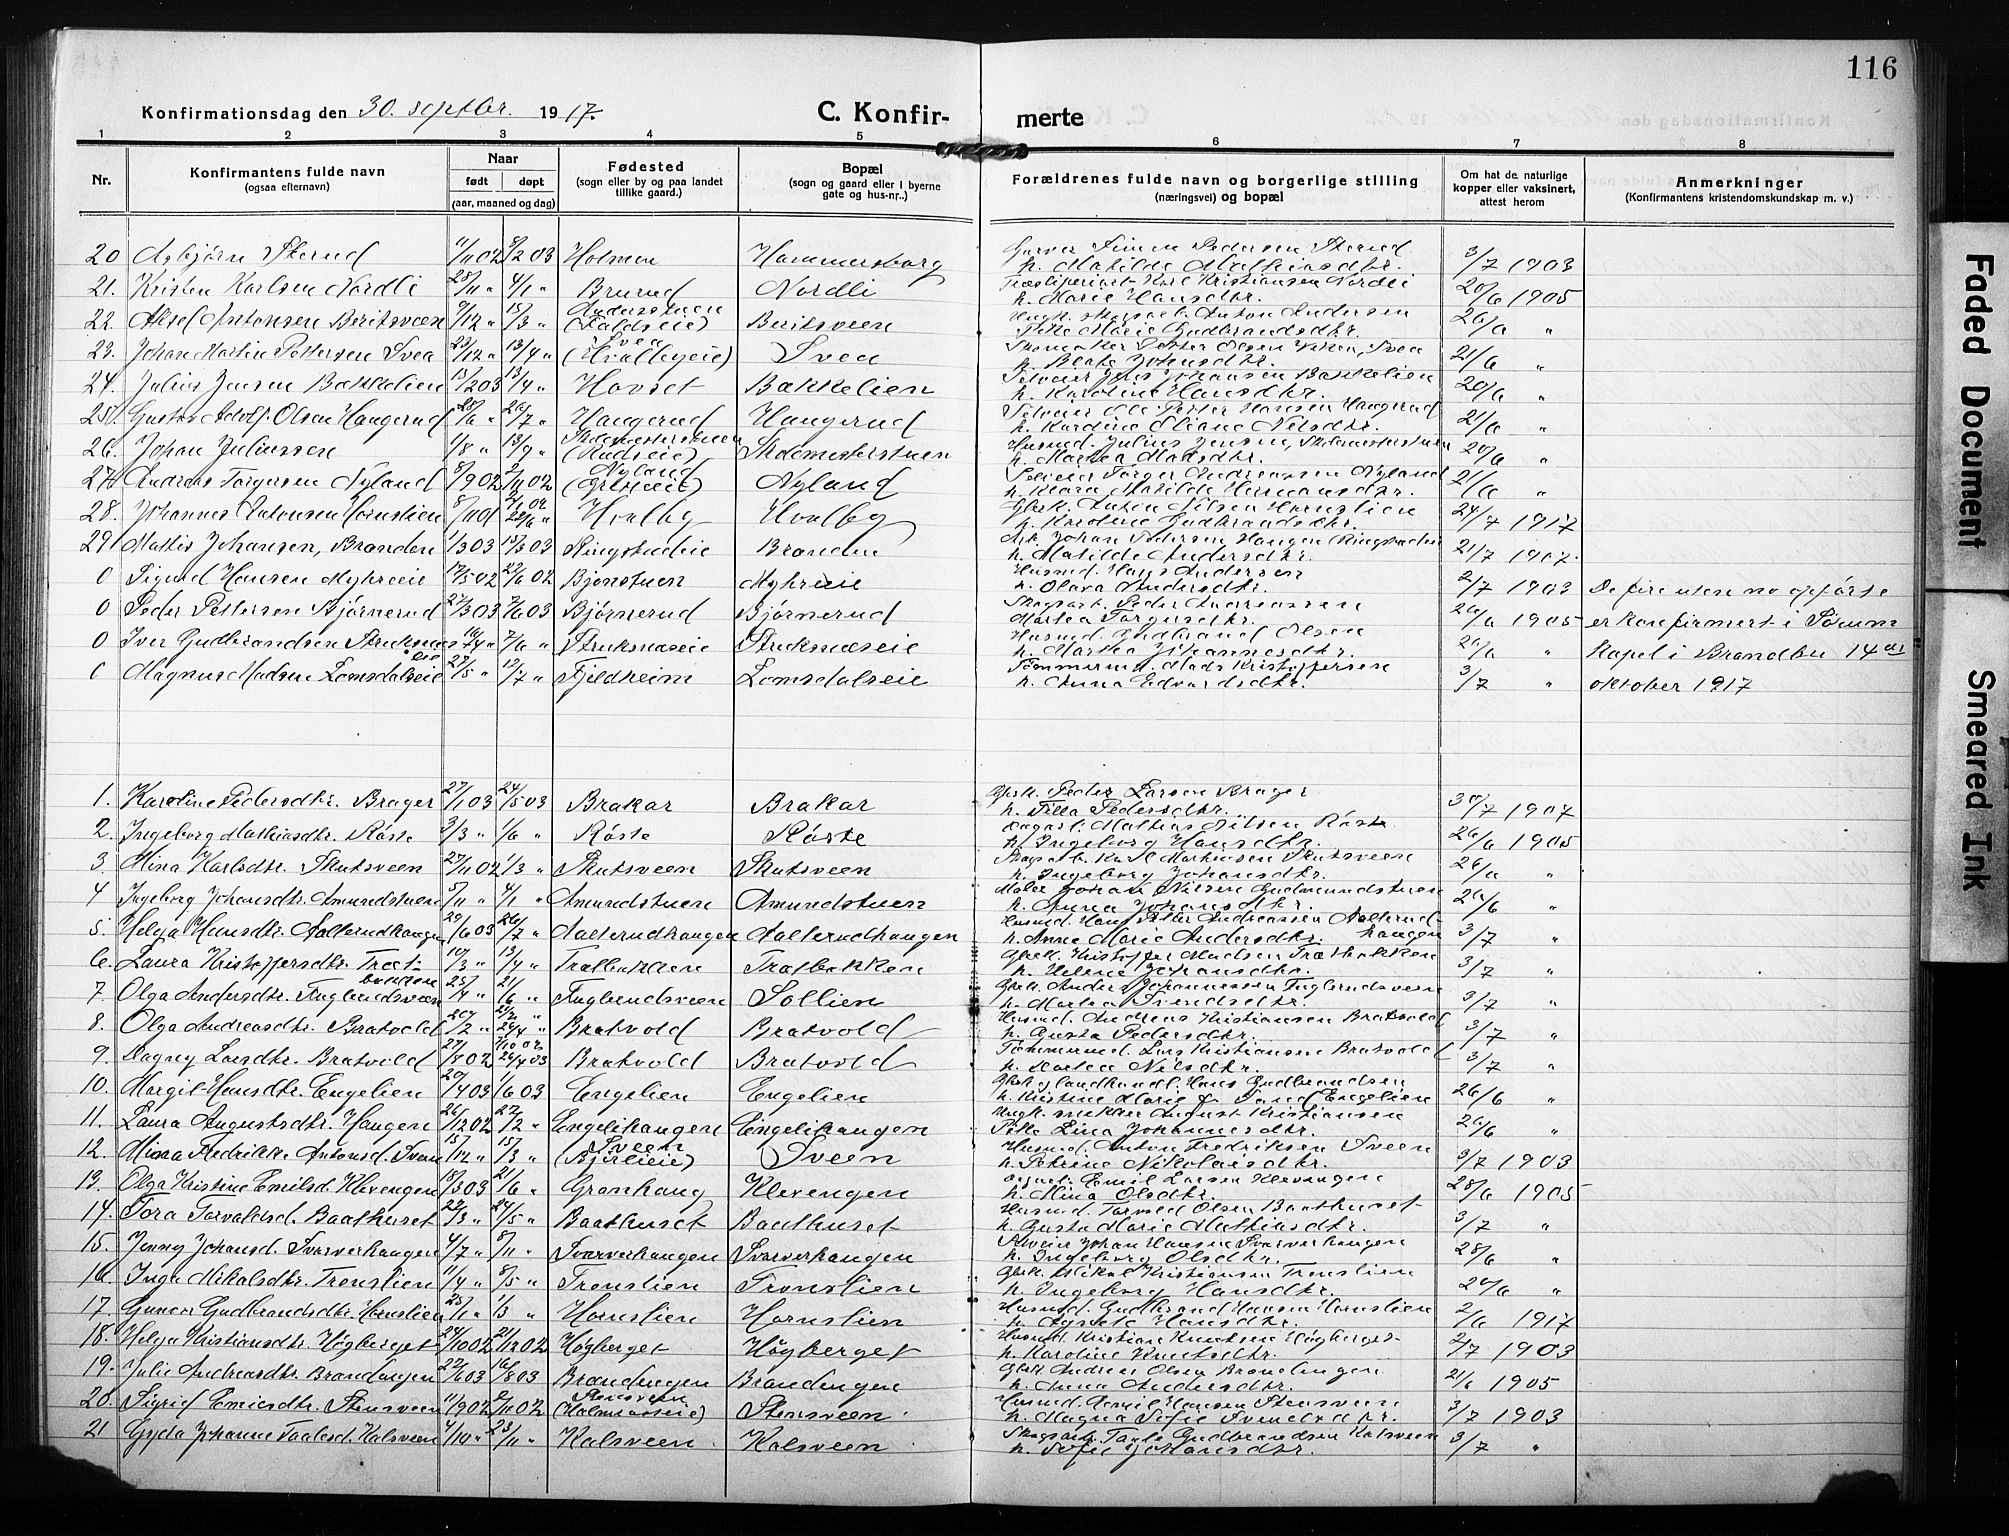 116
Konfirmationsdag den 30. septbr. 1917.
C. Konfirmerte
1 2 3 4 5 6 7 8
Nr. Konfirmantens fulde navn (ogsaa efternavn) Naar født døpt (aar, maaned og dag) Fødested (sogn eller by og paa landet tillike gaard.) Bopæl (sogn og gaard eller i byerne gate og hus-nr..) Forældrenes fulde navn og borgerlige stilling (næringsvei) og bopæl Om hat de naturlige kopper eller vaksinert, attest herom Anmerkninger (Konfirmantens kristendomskundskap m. v.)
20 Asbjørn Skerud 11/11 02 8/2 03 Holmen Hammersborg Garver Simen Pedersen Skerud h. Matilde Mathiasdtr. 3/7 1903
21. Kristen Karlsen Nordli 28/11 " 4/1 " Brurud Nordli Karl Kristiansen Nordli h. Marie Hansdtr. 20/6 1905
22. Aksel Antonsen Beritsveen 9/12 " 15/3 " (Faldseie) Beritsveen Ungk. Anton Andersen Pike Marie Gudbrandsdtr. 26/6 "
23. Johan Martin Pettersen Svea 23/12 " 13/4 " Svea (Hvalbyeie) Svea Skomaker Petter Olsen Svea h. Beate Johansdtr. 21/6 "
24. Julius Jensen Bakkelien 15/2 03 13/4 " Hovset Bakkelien Selveier Jens Johansen Bakkelien h. Karoline Hansdtr. 20/6 "
25. Gustav Adolf Olsen Haugerud 28/6 " 26/7 " Haugerud Haugerud Selveier Ole Petter Hansen Haugerud h. Kardine Oliane Nilsdtr. 21/6 "
26. Johan Juliussen 1/8 " 13/9 " Skolemesterstuen (Rudseie) Skolmesterstuen Husmd. Julius Jensen, Skolemesterstuen h. Martea Matsdtr. 20/6 "
27. Andreas Torgersen Nyland 8/9 02 2/11 02 Nyland Nyland Selveier Torger Andreassen Nyland h. Klara Matilde Hermansdtr. 21/6 "
28. Johannes Antonsen Hornslien 8/11 01 Hvalby Hvalby Gbrk. Anton Nilsen Hornslien h. Karoline Gudbrandsdtr. 24/7 1917
29. Mattis Johansen, Branden 1/3 03 15/3 03 Ringstadeie Branden Arb. Johan Pedersen Haugen Ringstadeie h. Matilde Andersdtr. 21/7 1907.
0 Sigurd Hansen Myhreeie 17/5 02 22/6 02 Bjønstuen Myhreeie Husmd. Hans Andersen h. Olava Andersdtr. 2/7 1903 De fire uten no opførte
0 Peder Pettersen Bjørnerud 27/3 03 7/6 03 Bjørnerud Bjørnerud Skogsarb. Peder Andreassen Martea Torgersdtr. 26/6 1905 er konfirmert i Sørum
0 Iver Gudbrandsen Struksnæs eie 16/4 " 7/6 " Struksnæseie Struksnæseie Husmd. Gudbrand Olsen h. Martha Johannesdtr. 26/6 " Kapel i Brandbu 14de
0 Magnus Madsen Lomsdalseie 27/5 " 12/7 " Fjeldheim Lomsdalseie Tømmermd. Mads Kristoffersen h. Anna Edvardsdtr. 3/7 " oktober 1917
1. Karoline Pedersdtr. Brager 27/1 03 24/5 03 Brakar Brakar Gbrk. Peder Larsen Brager h. Tilla Pedersdtr. 30/7 1907
2. Ingeborg Mathiasdtr. Røste 3/3 " 1/6 " Røste Røste Dagarb. Mathias Nilsen Røste h. Ingeborg Hansdtr. 26/6 1905
3. Mina Karlsdtr. Skutsveen 27/11 02 1/3 " Skutsveen Skutsveen Skogsarb. Karl Markussen Skutsveen h. Ingeborg Johansdtr. 26/6 "
4 Ingeborg Johansdtr. Amundstuen 5/11 " 4/1 " Amundstuen Amundstuen Maler Johan Nilsen h. Anna Johansdtr. 26/6 "
5. Helga Hansdtr. Aalterudhaugen 29/6 03 26/7 " Aalterudhaugen Aalterudhaugen Husmd. Hans Petter Andreassen Aalterudhaugen h. Anne Marie Andersdtr. 3/7 "
6. Laura Kristoffersdtr. Trætbakken 10/3 " 13/4 " Trætbakken Trætbakken Gbrk. Kristoffer Madsen Trætbakken h. Helene Johansdtr. 3/7 "
7. Olga Andersdtr. Fuglerudsveen 25/4 " 21/6 " Fuglerudsveen Sollien Gbrk. Anders Johannessen Fuglerudsveen h. Martea Svendsdtr. 3/7 "
8. Olga Andreasdtr. Bratvold 20/2 " Bratvold Bratvold Husmd. Andreas Kristiansen Bratvold h. Gusta Pedersdtr. 3/7 "
9. Dagny Larsdtr. Bratvold 27/8 02 26/4 03 Bratvold Bratvold Tømmermd. Lars Kristiansen Bratvold h. Martea Nilsdtr. 3/7 "
10. Margit Hansdtr. Engelien 20/4 03 1/6 03 Engelien Engelien Gbrk. og landhandl. Hans Gudbrandsen h. Kristine Marie Engelien 26/6 "
11. Laura Augustsdtr. Haugen 26/12 02 22/2 " Engelihaugen Engelihaugen Ungk. snekker August Kristiansen Pike Lina Johannesdtr. 26/6 "
12. Minna Fredrikke Antonsd. Sveen 15/12 " 15/3 " Sveen (Bjørlieie) Sveen Husmd. Anton Fredriksen Sveen h. Petrine Nikolaisdtr. 3/7 1903
13. Olga Kristine Emilsd. Klevengen 18/3 03 21/6 " Granhaug Klevengen Emil Larsen Klevengen h. Mina Olsdtr. 28/6 1905
14. Tora Torvaldsd. Baathuset 22/3 " 24/5 " Baathuset Baathuset Husmd. Torvald Olsen Baathuset h. Gusta Marie Mathiasdtr. 3/7 "
15. Jenny Johansd. Svarverhaugen 4/7 " 8/11 " Svarverhaugen Svarverhaugen Selveier Johan Hansen Svarverhaugen h. Ingeborg Olsdtr. 28/6 "
16. Inga Mikalsdtr. Tronslien 11/4 " 8/5 " Tronslien Tronslien Gbrk. Mikal Kristiansen Tronslien h. Ingeborg Hansdtr. 20/6 "
17. Gunvor Gudbrandsdtr. Hornslien 25/1 " 1/3 " Hornslien Hornslien Husmd. Gudbrand Hansen Hornslien h. Agnete Hansdtr. 2/6 1917
18. Helga Kristiansdtr. Høgberget 24/10 02 21/12 02 Høgberget Høgberget Husmd. Kristian Knutsen Høgberget h. Karoline Knutsdtr. 2/7 1903
19. Julie Andreasdtr. Brandengen 22/6 03 16/8 03 Brandengen Brandengen Gbrk. Andreas Olsen Brandengen h. Anna Andersdtr. 21/6 1905
20. Sigrid Emilsdtr. Stensveen 11/9 02 2/11 02 Stensveen Stensveen Husmd. Emil Hansen Stensveen h. Magna Sofie Svendsdtr. 3/7 1903
21 Gyda Johanne Paalsd. Kalsveen 4/10 " 23/11 " Kalsveen Kalsveen Skogsarb. Gudbrandsen Kalsveen h. Sofie Johansdtr. 3/7 "
Faded Document
Smeared Ink